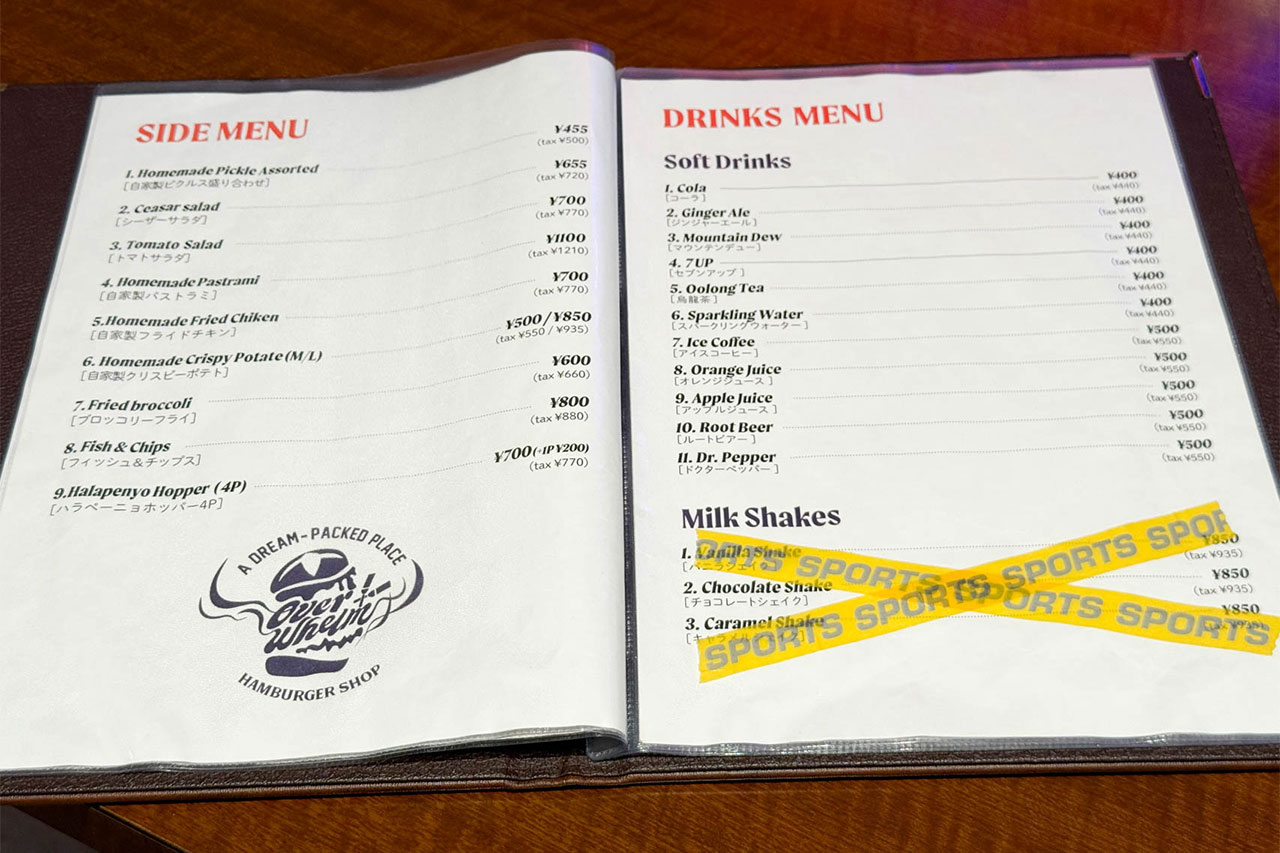 SIDE MENU
1. Homemade Pickle Assorted ¥455
[自家製ピクルス盛り合わせ] (tax ¥500)
2. Ceasar salad ¥655
[シーザーサラダ] (tax ¥720)
3. Tomato Salad ¥700
[トマトサラダ] (tax ¥770)
4. Homemade Pastrami ¥1100
[自家製パストラミ] (tax ¥1210)
5.Homemade Fried Chiken ¥700
[自家製フライドチキン] (tax ¥770)
6. Homemade Crispy Potate (M/L) ¥500 / ¥850
[自家製クリスピーポテト] (tax ¥550 / ¥935)
7.Fried broccoli ¥600
[ブロッコリーフライ] (tax ¥660)
8. Fish & Chips ¥800
[フィッシュ＆チップス] (tax ¥880)
9.Halapenyo Hopper (4P) ¥700(+1P ¥200)
[ハラペーニョホッパー4P] (tax ¥770)
A DREAM-PACKED PLACE
Over
Whelm
HAMBURGER SHOP
DRINKS MENU
Soft Drinks
1. Cola ¥400
[コーラ] (tax ¥440)
2. Ginger Ale ¥400
[ジンジャーエール] (tax ¥440)
3. Mountain Dew ¥400
[マウンテンデュー] (tax ¥440)
4. 7UP ¥400
[セブンアップ] (tax ¥440)
5. Oolong Tea ¥400
[烏龍茶] (tax ¥440)
6. Sparkling Water ¥400
[スパークリングウォーター] (tax ¥440)
7. Ice Coffee ¥500
[アイスコーヒー] (tax ¥550)
8. Orange Juice ¥500
[オレンジジュース] (tax ¥550)
9. Apple Juice ¥500
[アップルジュース] (tax ¥550)
10. Root Beer ¥500
[ルートビアー] (tax ¥550)
11. Dr. Pepper ¥500
[ドクターペッパー] (tax ¥550)
Milk Shakes
1. Vanilla Shake ¥850
[バニラシェイク] (tax ¥935)
2. Chocolate Shake ¥850
[チョコレートシェイク] (tax ¥935)
3. Caramel Shake ¥850
[キャラメルシェイク] (tax ¥935)
SPORTS SPORTS SPORTS SPOR
SPORTS SPORTS SPORTS